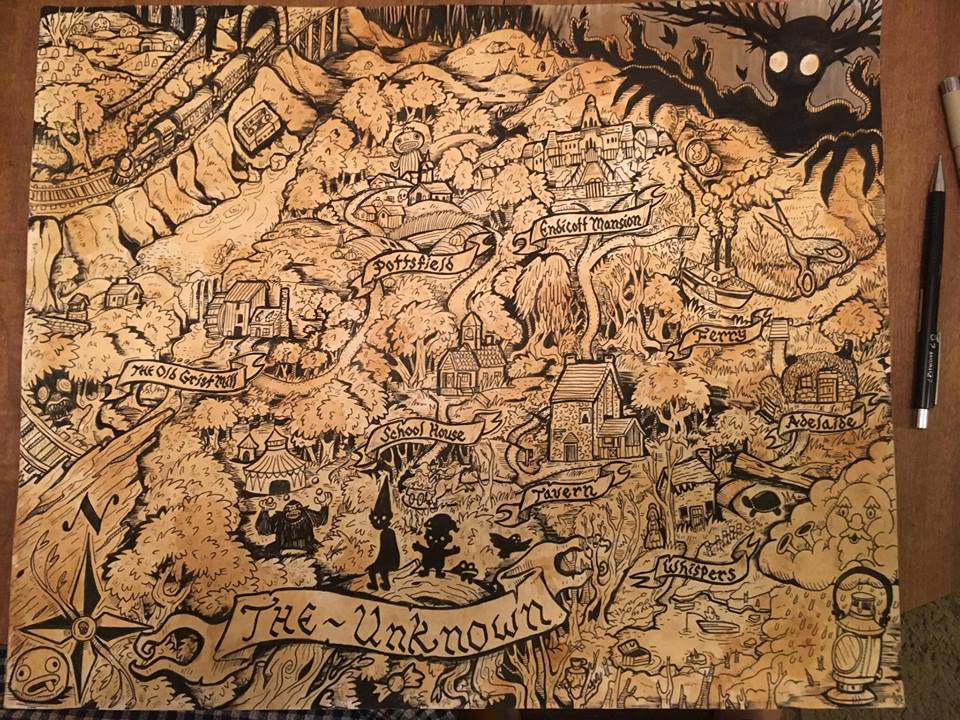 Endicott Mansion
Pottsfield
Ferry
The Old Grist Mill
Adelaide
School House
Tavern
Whispers
N
THE ~ Unknown